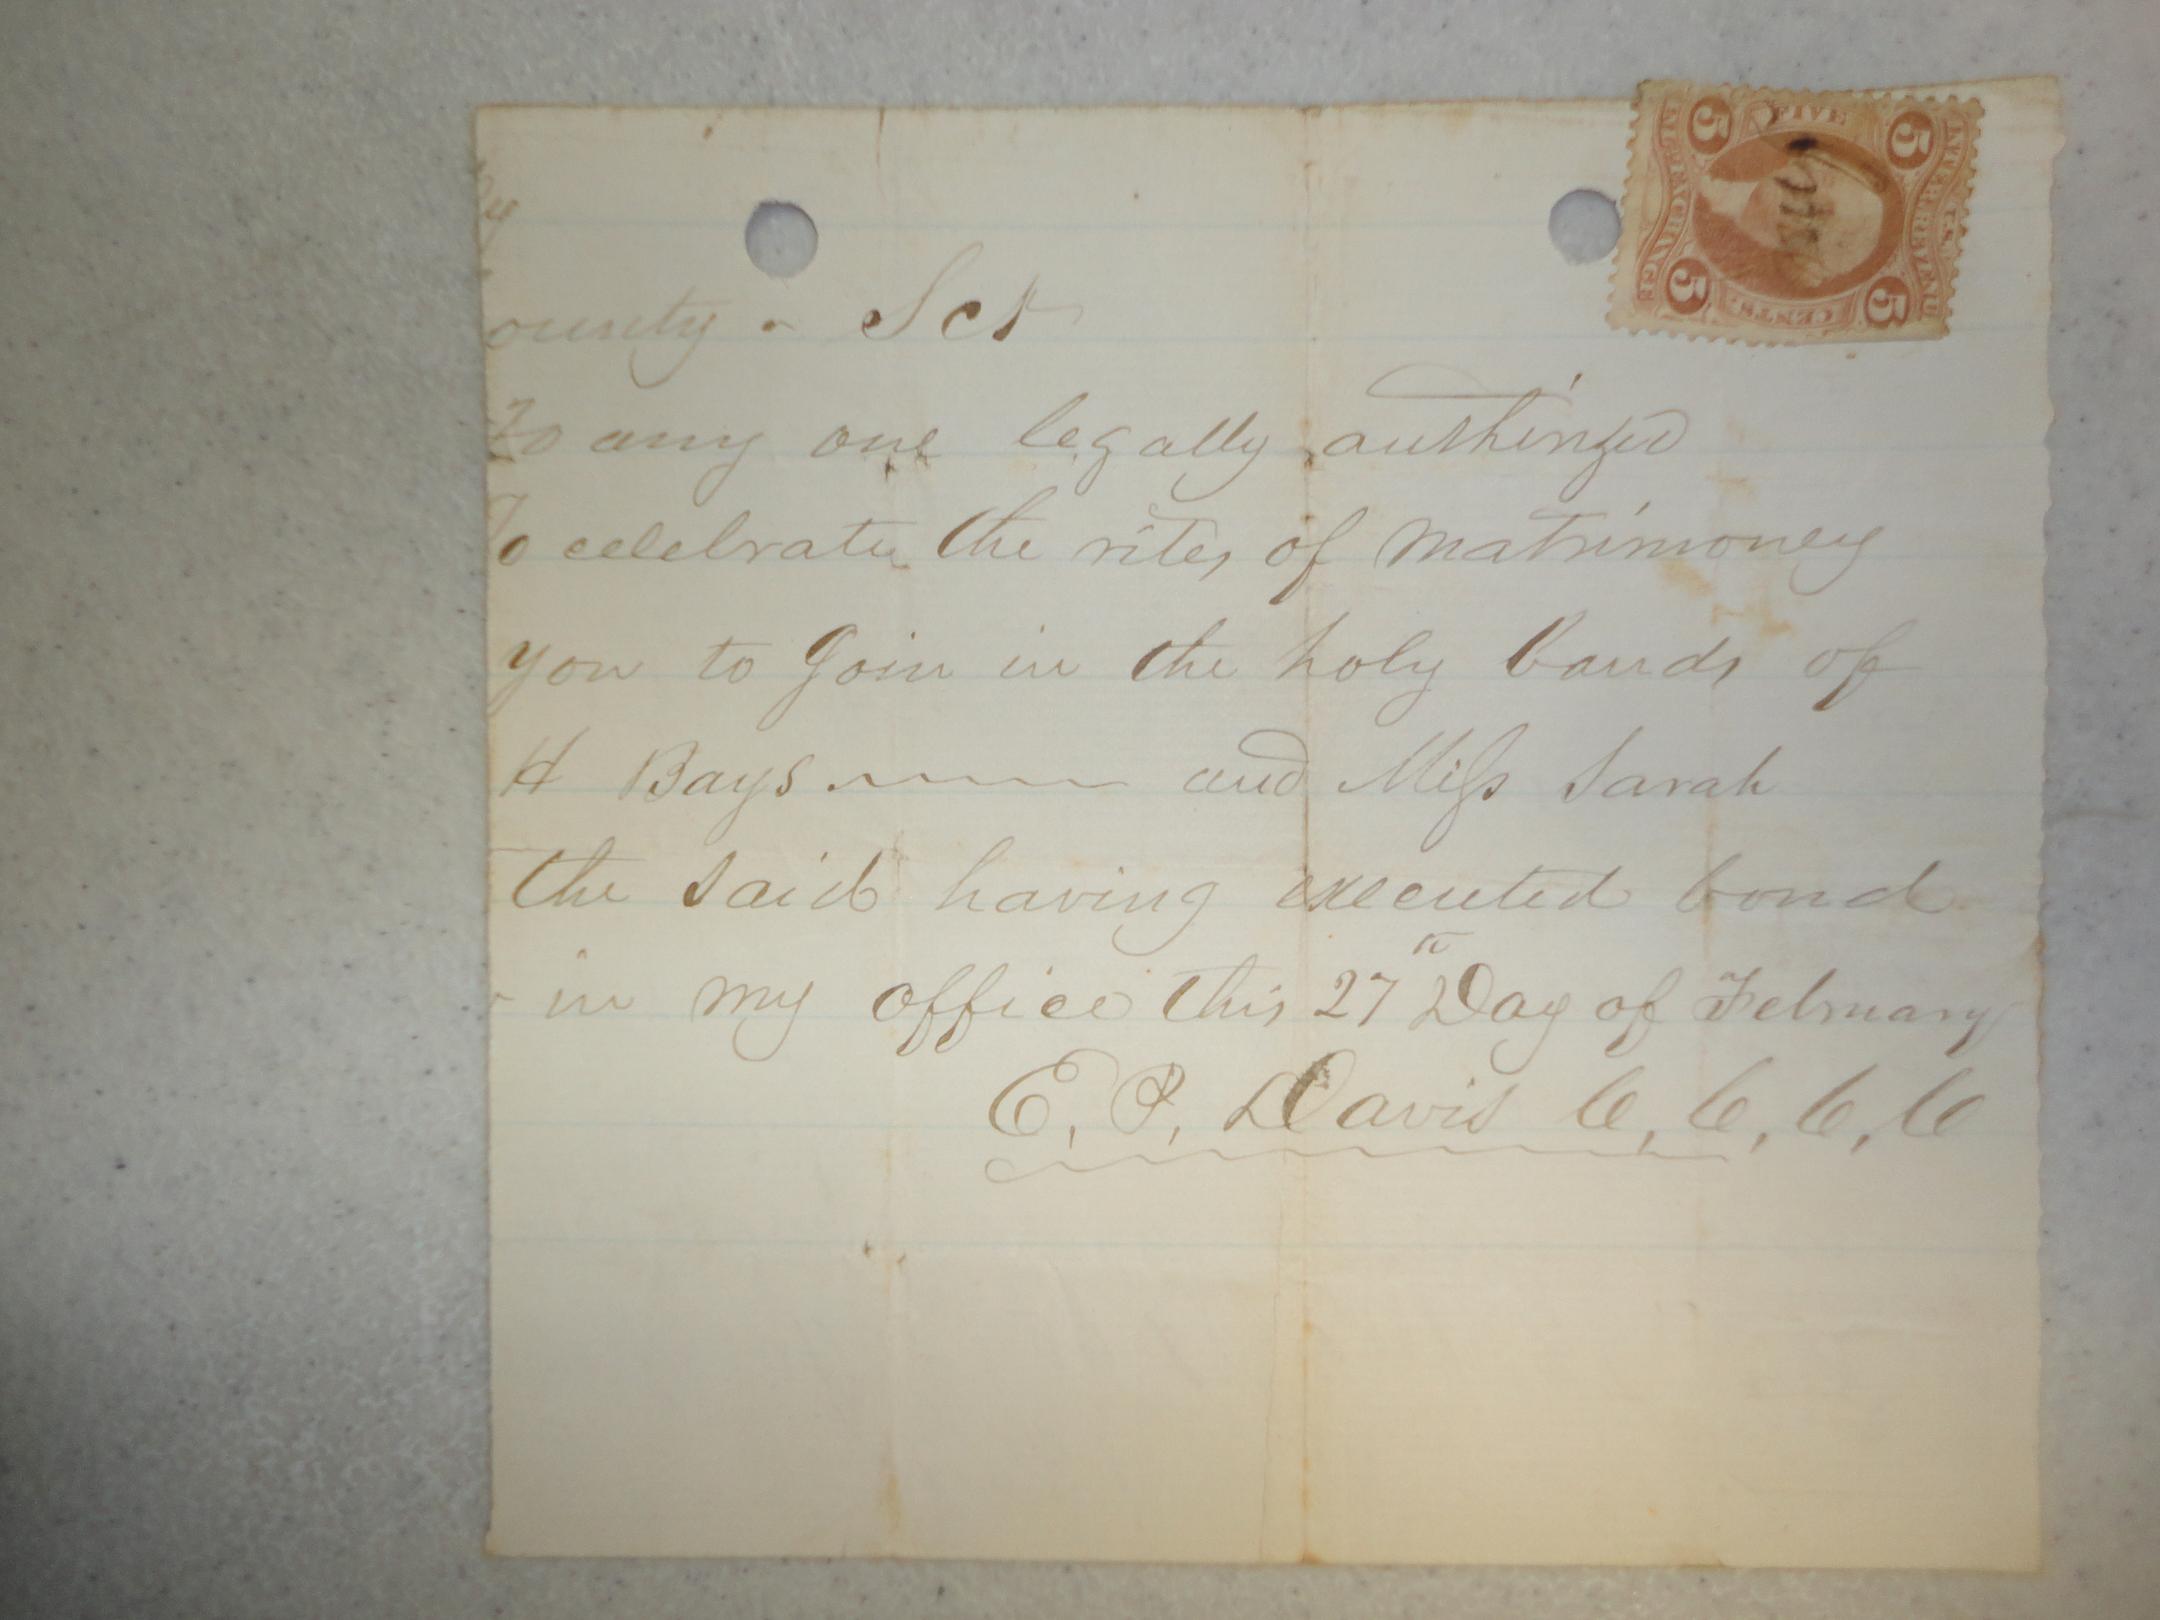 y
ounty - Sct
To any one legally authirized
To celebrate the rites of matrimoney
you to Join in the holy bands of
H Bays and Miss Sarah
the said having executed bond
in my office this 27th Day of February
E. P. Davis C, C, C, C
FIVE
5 5
INTER. REVENUE
INL. EXCHANGE
U.S.
5 5
CENTS.